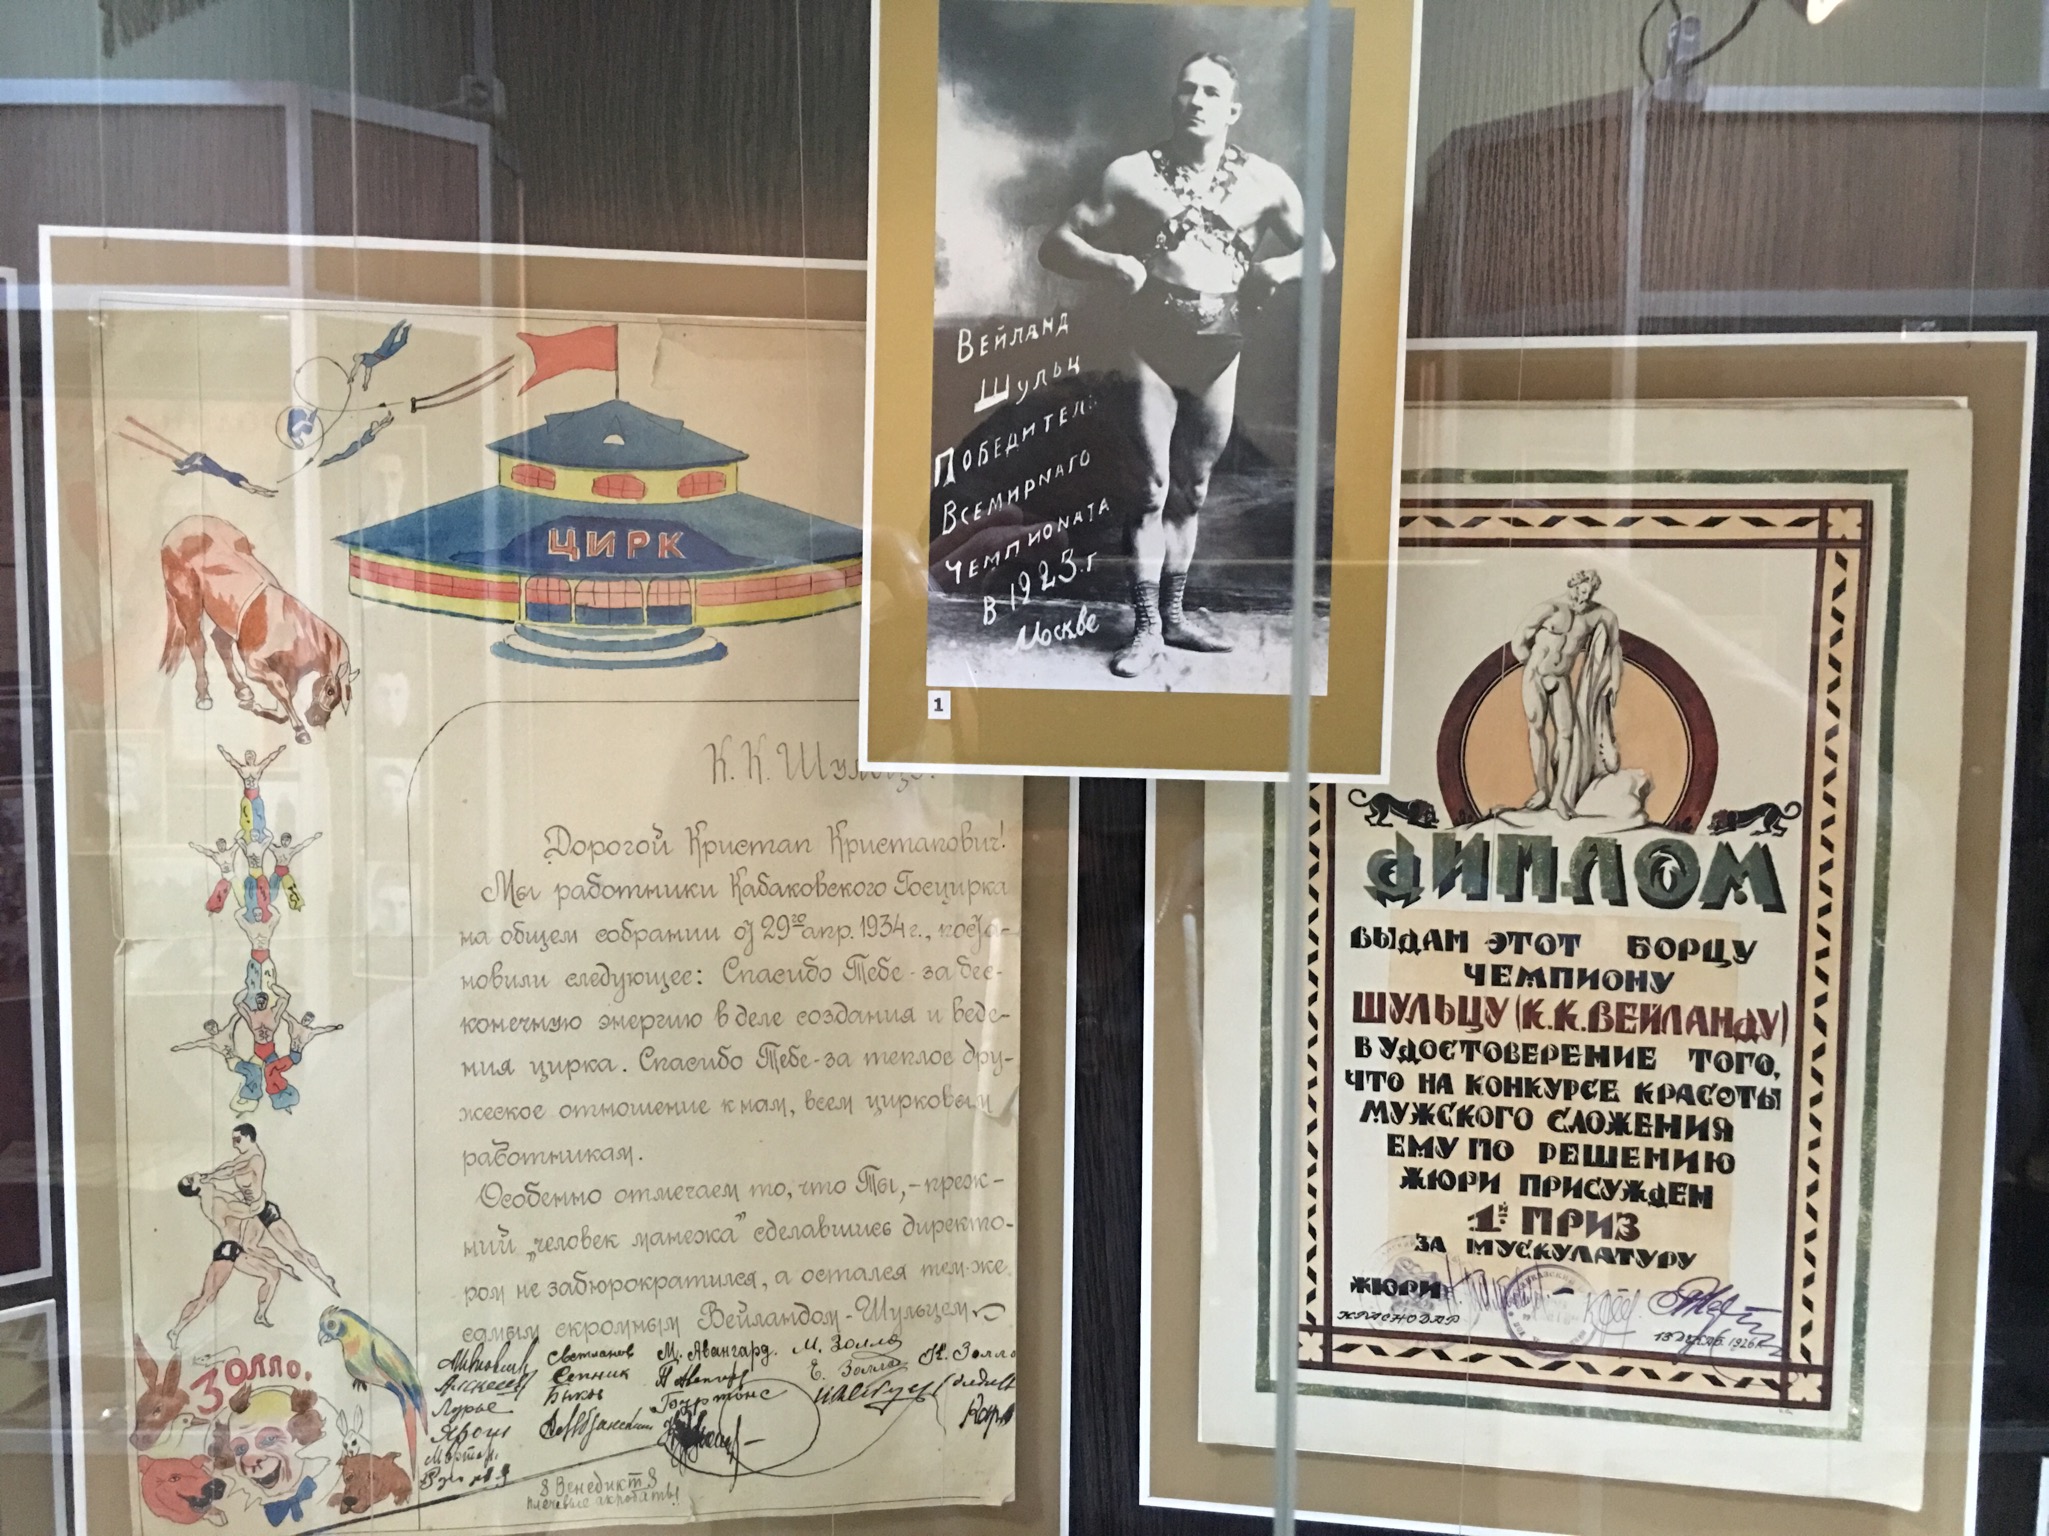 ЦИРК
К. К. Шульцу.
Дорогой Кристап Кристапович!
Мы работники Кабаковского Госцирка
на общем собрании от 29го апр. 1934 г., поста-
новили следующее: Спасибо Тебе - за бес-
конечную энергию в деле создания и веде-
ния цирка. Спасибо Тебе - за теплое дру-
жеское отношение к нам, всем цирковым
работникам.
Особенно отмечаем то, что Ты, - преж-
ний „человек манежа" сделавшись директо-
ром не забюрократился, а остался тем-же
самым скромным Вейландом - Шульцем
Светланов М. Авангард. М. Золло
Сенник Е. Золло К. Золло
Лурье Быков Гуртонс
Ярош
Золло.
8 Венедикт 8
плечевые акробаты!
Вейланд
Шульц
Победитель
Всемирнаго
Чемпионата
в 1925.г
Москве
1
ДИПЛОМ
ВЫДАН ЭТОТ БОРЦУ
ЧЕМПИОНУ
ШУЛЬЦУ (К.К.ВЕЙЛАНДУ)
В УДОСТОВЕРЕНИЕ ТОГО,
ЧТО НА КОНКУРСЕ КРАСОТЫ
МУЖСКОГО СЛОЖЕНИЯ
ЕМУ ПО РЕШЕНИЮ
ЖЮРИ ПРИСУЖДЕН
1й ПРИЗ
ЗА МУСКУЛАТУРУ
ЖЮРИ
КРАСНОДАР
1926 г.